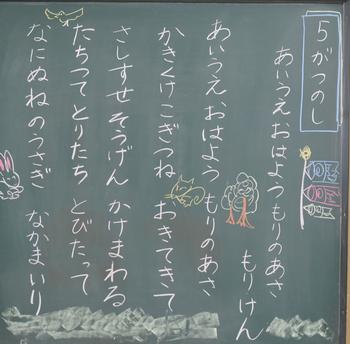 5がつのし
あいうえ、おはようもりのあさ
もりけん
あいうえ、おはよう もりのあさ
かきくけこぎつね おきてきて
さしすせそうげん かけまわる
たちつてとりたち とびたって
なにぬねのうさぎ なかまいり